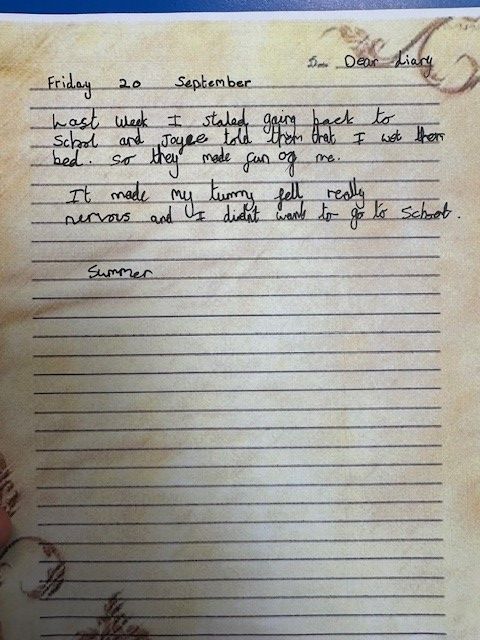 Dear diary
Friday 20 September
Last week I stated going back to
School and Joyce told them that I wet them
bed. so they made fun og me.
It made my tummy fell really
nervous and I didnt want to go to School.
Summer